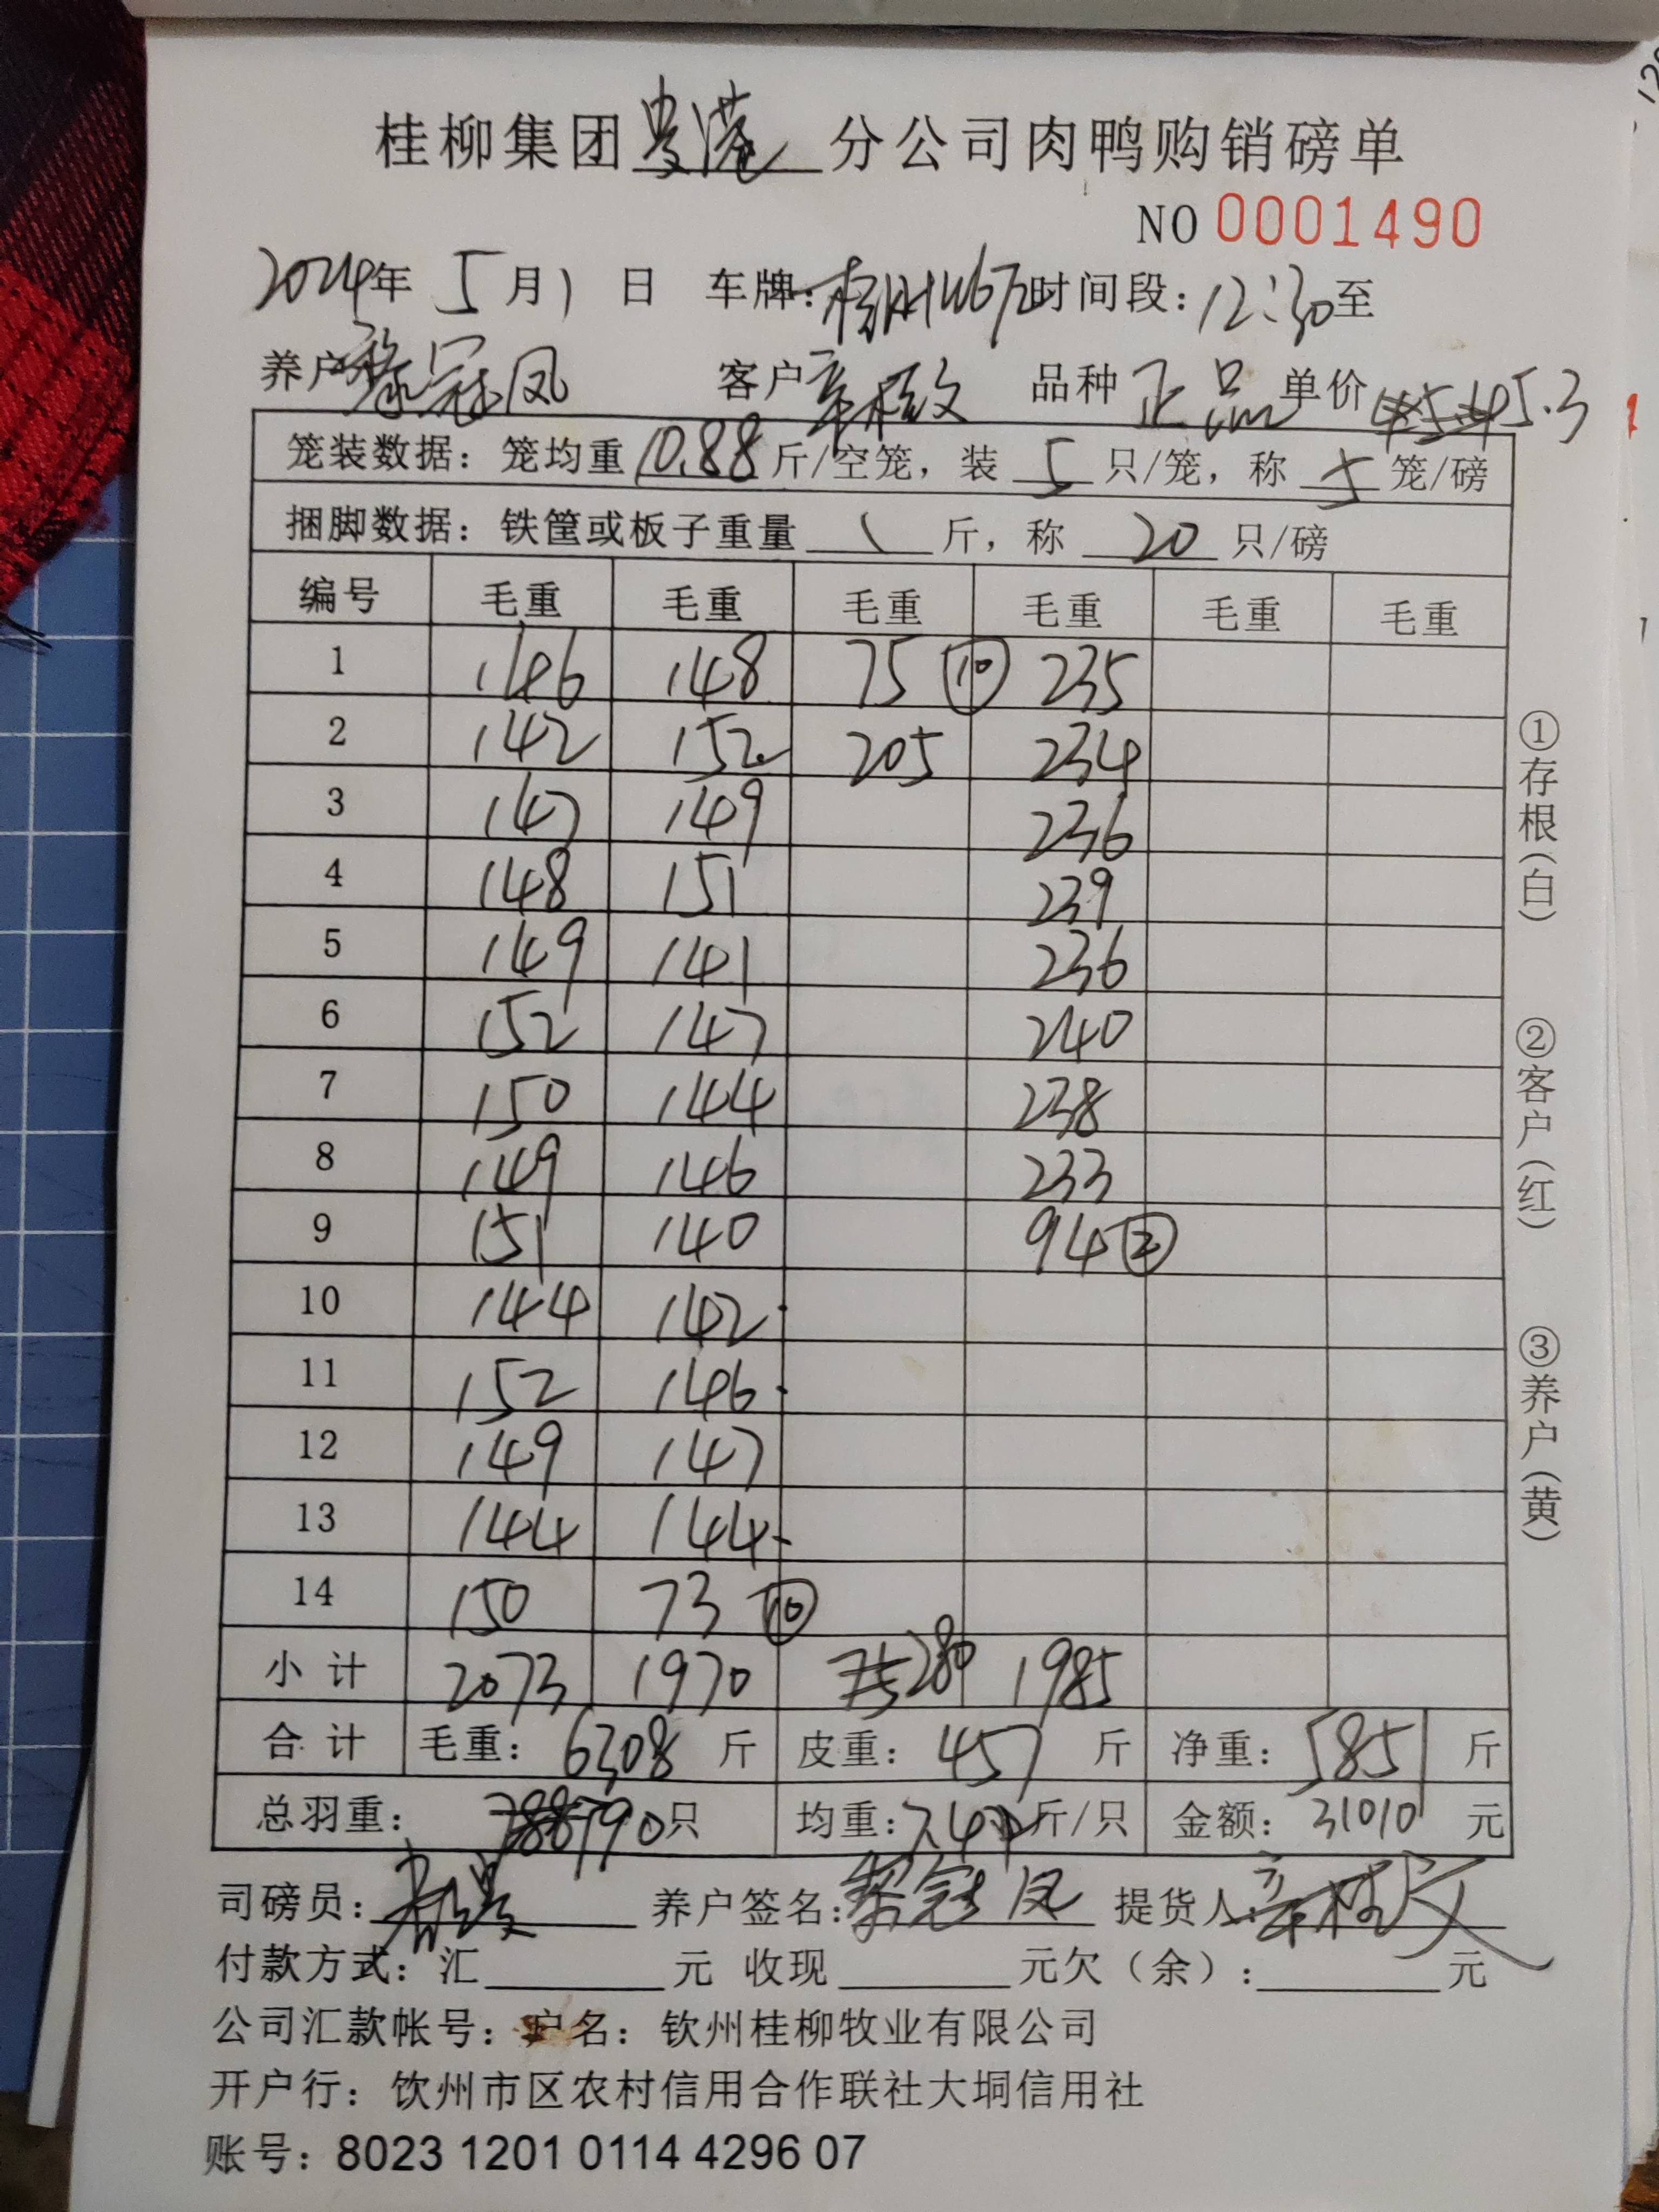 桂柳集团贵港分公司肉鸭购销磅单
NO 0001490
2024年 5月1日 车牌: 时间段:12:30至
养户 冠凤 客户 品种 正品 单价 5.3
笼装数据:笼均重10.88斤/空笼,装5只/笼,称5笼/磅
捆脚数据:铁筐或板子重量 \ 斤,称20只/磅
编号 毛重 毛重 毛重 毛重 毛重 毛重
1 146 148 75 ⑩ 235
2 142 152 205 234
3 147 149 236
4 148 151 239
5 149 141 236
6 152 147 240
7 150 144 238
8 149 146 233
9 151 140 94 ②
10 144 142
11 152 146
12 149 147
13 144 144
14 150 73 ⑩
小计 2073 1970 280 1985
合计 毛重:6308斤 皮重:457斤 净重:5851斤
总羽重: 790只 均重:7.41斤/只 金额:31010元
司磅员: 养户签名: 冠凤 提货人:
付款方式:汇 元 收现 元欠(余): 元
公司汇款帐号:户名:钦州桂柳牧业有限公司
开户行:钦州市区农村信用合作联社大垌信用社
账号:8023 1201 0114 4296 07
①存根(白) ②客户(红) ③养户(黄)